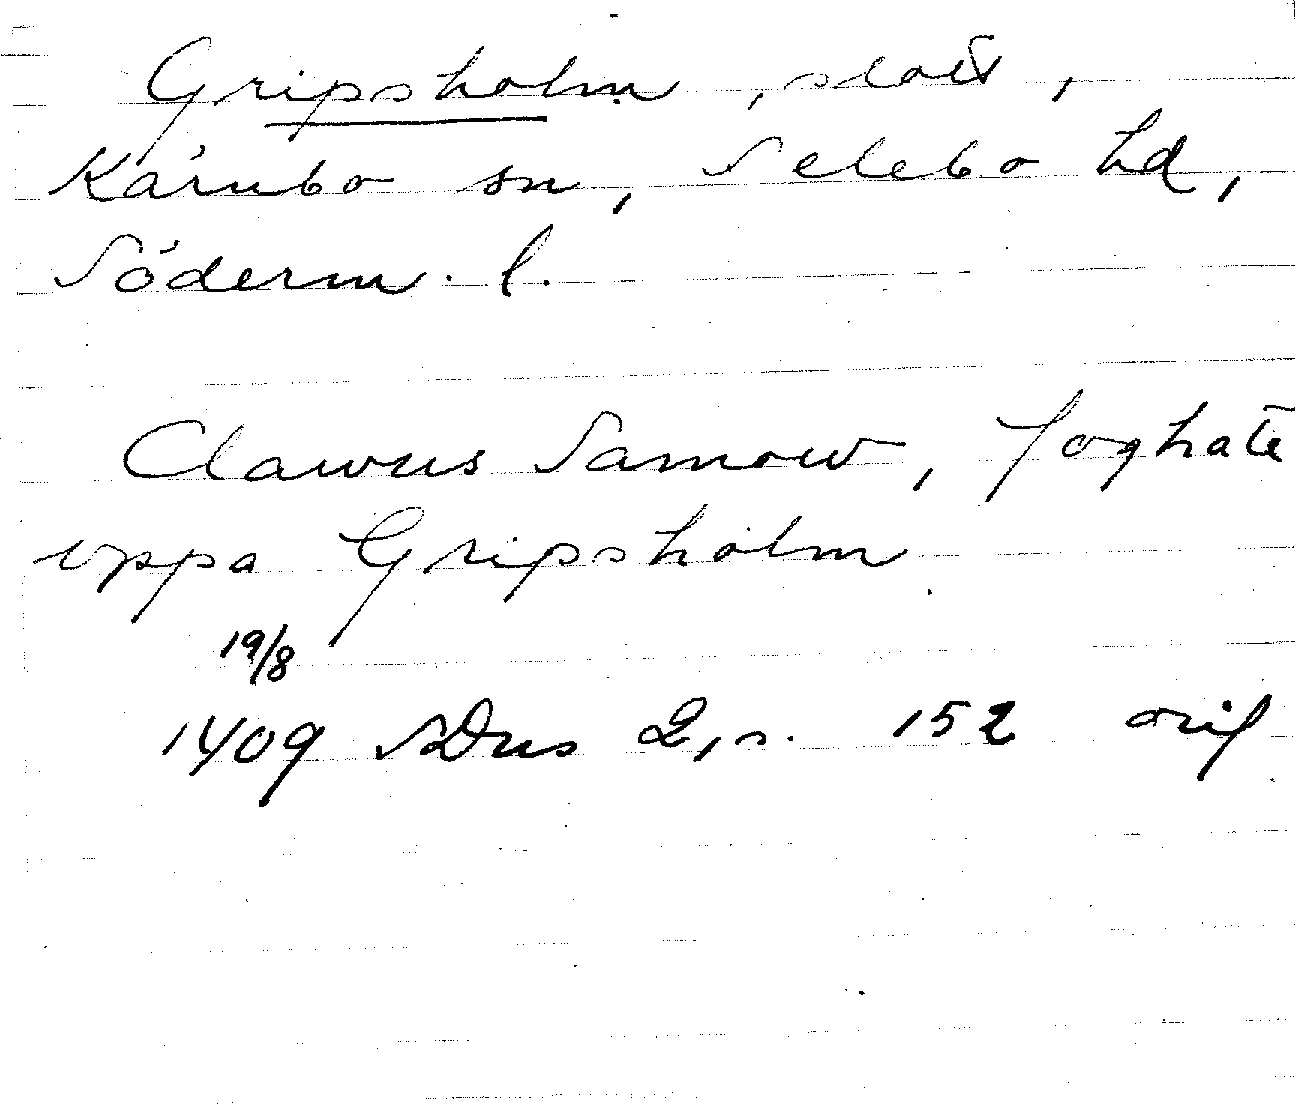 Gripsholm, slott,
Kärnbo sn, Selebo hd,
Söderm. l.
Clawus Samow, foghate
vppa Gripsholm
19/8
1409 SDns 2, s. 152 orig